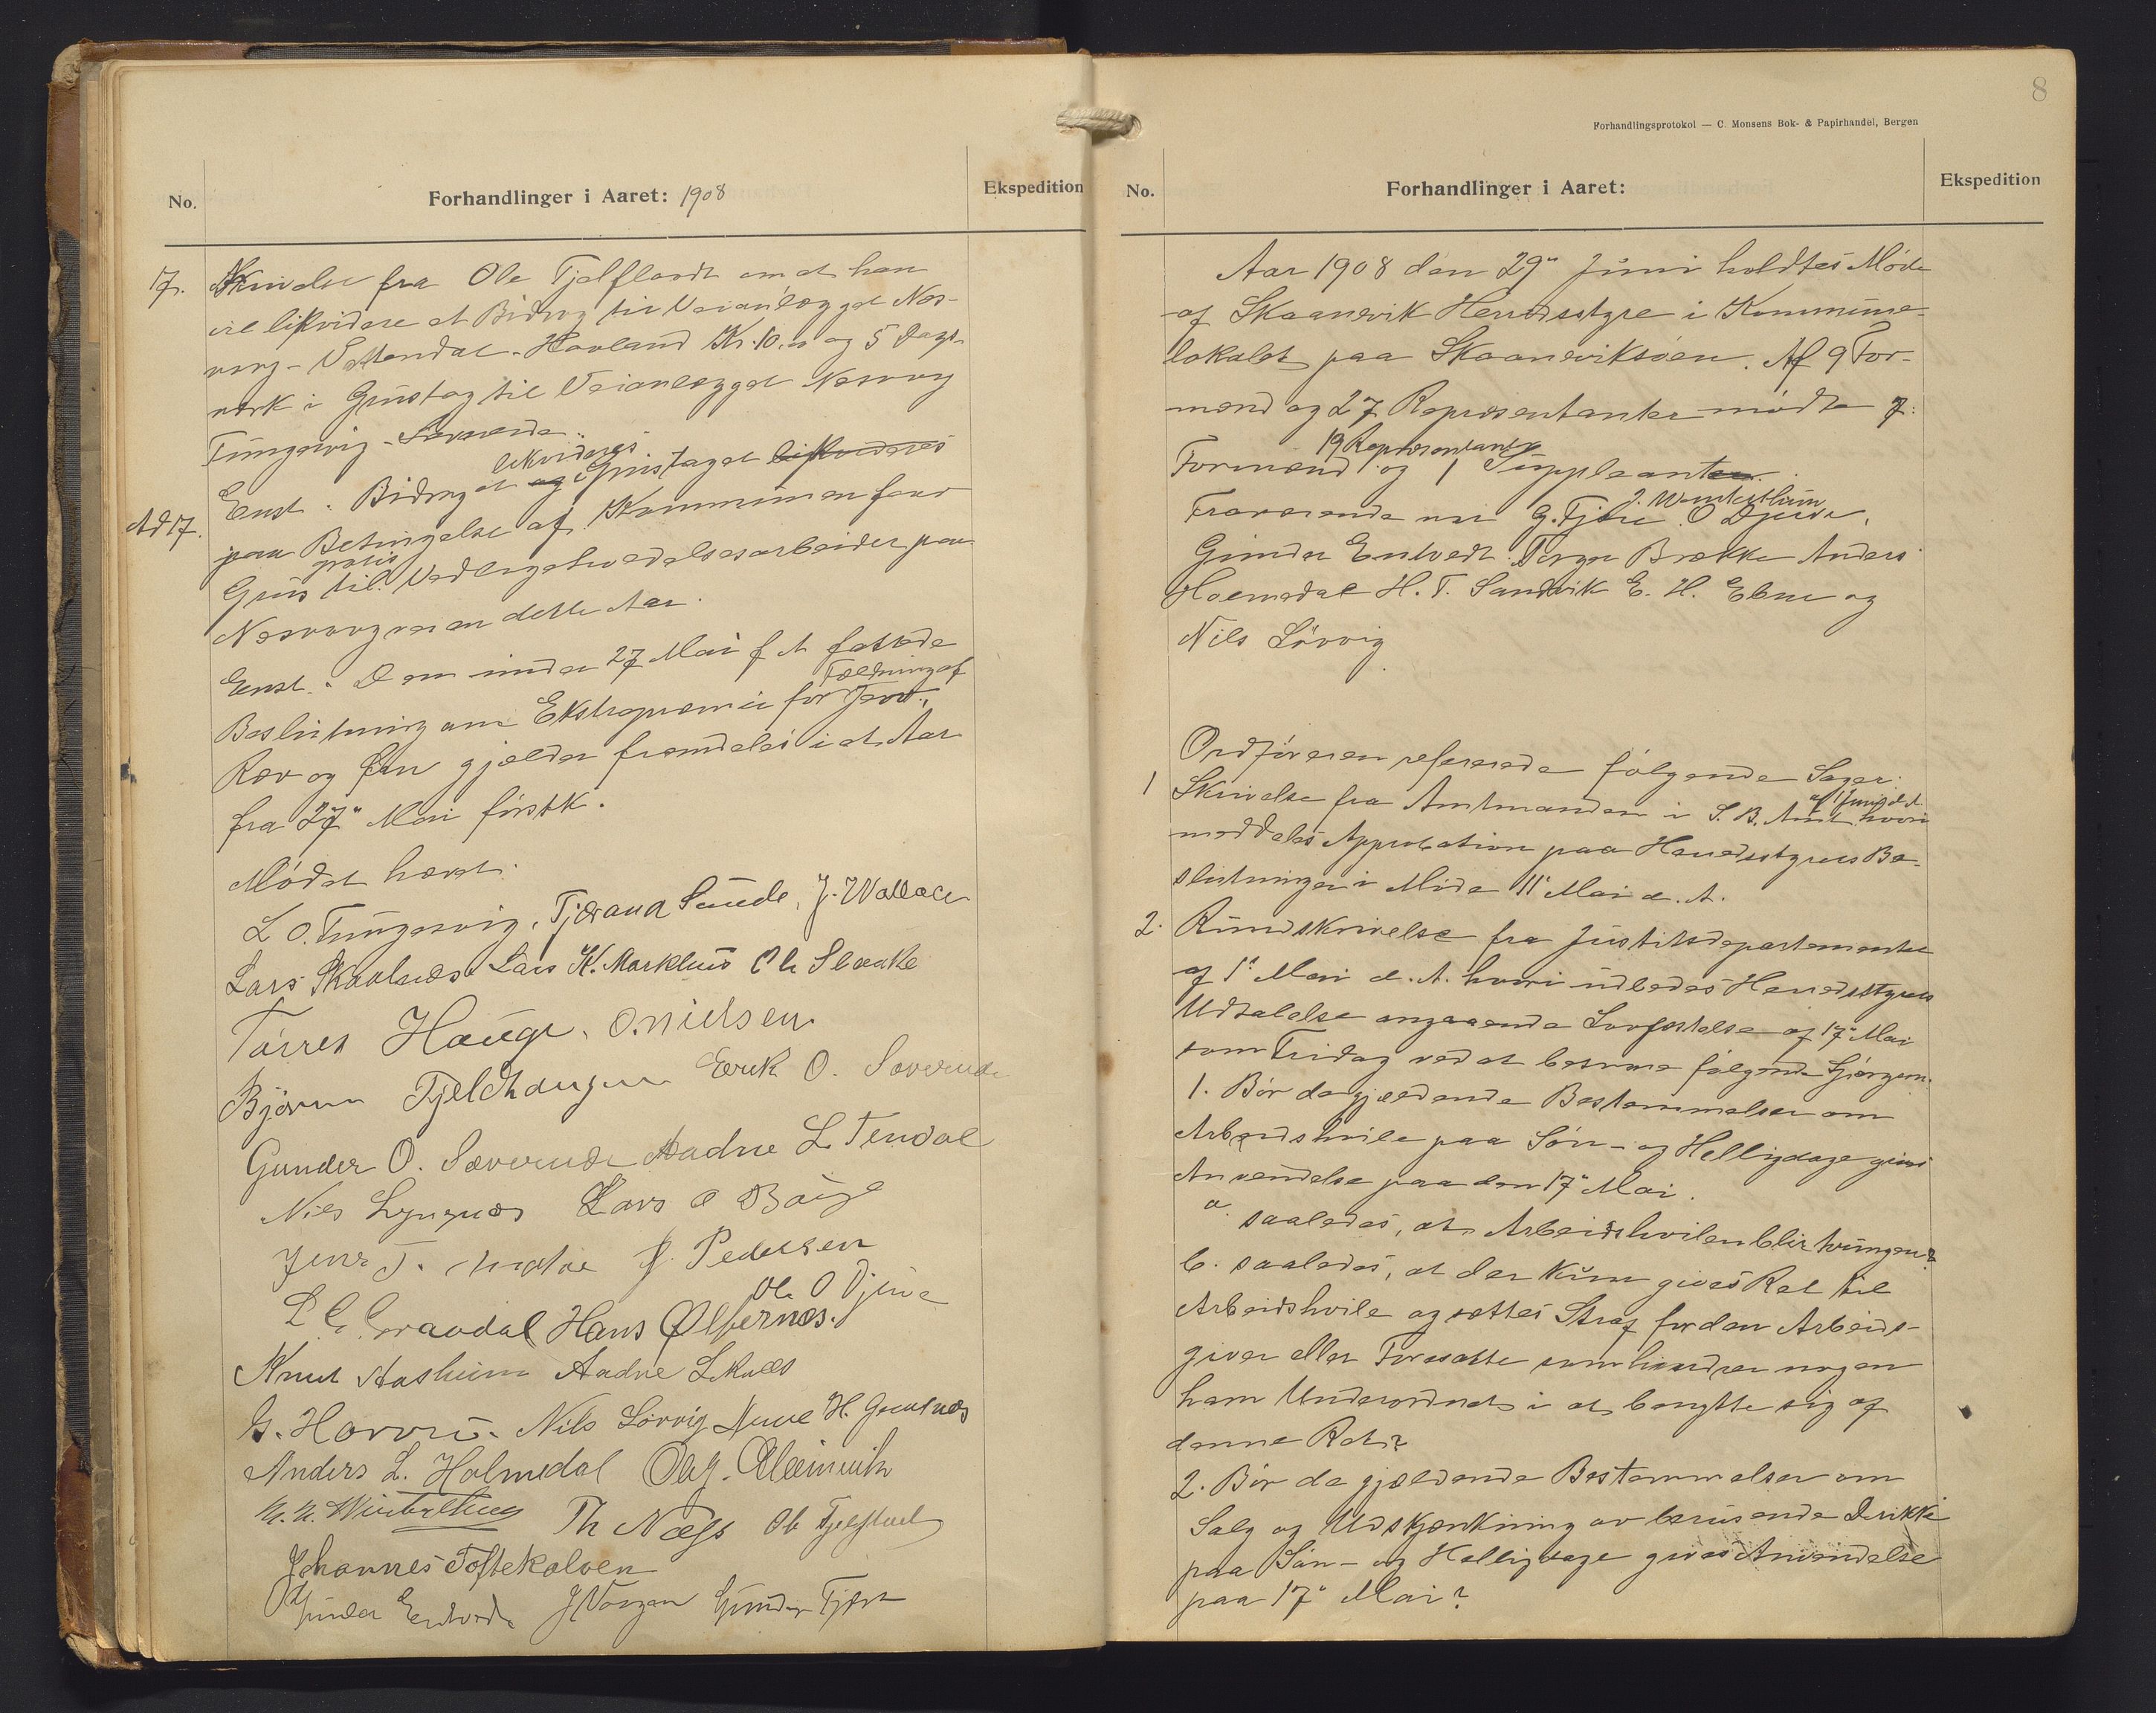 No.
Forhandlinger i Aaret: 1908
Ekspedition
17. Skrivelse fra Ole Fjelflaadt om at han
vil likvidere et Bidrag til Veianlægget Næs-
vaag - Vattendal - Havland Kr. 10.00 og 5 Dags-
værk i Grustag til Veianlægget Næsvaag
Tungesvig - Sævareide.
likvideres
Ad 17. Enst. Bidraget og Grustaget likvideres
paa Betingelse af Kommunen faar
gratis
Grus til Vedligeholdelsesarbeider paa
Næsvaagveien dette Aar.
Enst. Den under 27 Mai f A fattede
Fældning af
Beslutning om Ekstrapræmie for
Ræv og Ørn gjælder fremdeles i et Aar
fra 27" Mai førstk.
Mødet hævet.
L O. Tungesvig, Tjæran d Sunde, J. Wallace
Lars Skaalnæs Lars K. Markhus Ole Slaake
Tørres Hauge, O. Nielsen
Bjørn Fjeldhaugen Eerik O. Sæverude
Gunder O. Sæverude Aadne L Tendal
Nils Lars O Bauge
Jens T. J. Pedersen
Ole O Djuve
L G. Gravdal Hans Ølfernæs.
Knut Aasheim Aadne L Næs
G. Havvri. Nils Lørvig H.
Anders L. Holmedal Olaf.
N. N. Winterthun Th Næss Ole Fjelflaadt
Johannes Toftekalven
Gunder Entvedt J Vaagen Gunder Fjære
8
Forhandlingsprotokol — C. Monsens Bok- & Papirhandel, Bergen
No.
Forhandlinger i Aaret:
Ekspedition
Aar 1908 den 29" Juni holdtes Møde
af Skaanevik Herredsstyre i Kommune-
lokalet paa Skaaneviksøen. Af 9 For-
mænd og 27 Repræsentanter mødte 7
19 Repræsentanter
Formænd og 1 Suppleanter.
J. Winterthun
Fraværende var G. Fjære O Djuve,
Gunder Entvedt. Torger Brække Anders
Holmedal H. T. Sandvik E. H. Ebne og
Nils Lørvig
Ordføreren refererede følgende Sager:
1 Skrivelse fra Amtmanden i S. B. Amt hvori
af 1 Juni d. A.
meddeles Approbation paa Herredsstyrets Be-
slutninger i Møde 11" Mai d. A.
2. Rundskrivelse fra Justitsdepartementet
af 1" Mai d. A. hvori udbedes Herredsstyrets
Udtalelse angaaende Lovfæstelse af 17" Mai
som Fridag ved at besvare følgende Spørgsm.
1. Bør de gjældende Bestemmelser om
Arbeidshvile paa Søn- og Helligdage gives
Anvendelse paa den 17" Mai.
a. saaledes, at Arbeidshvilen blir tvungen?
b. saaledes, at der kun gives Ret til
Arbeidshvile og sættes Straf for den Arbeids-
giver eller Foresatte som hindrer nogen
ham Underordnet i at benytte sig af
denne Ret?
2. Bør de gjældende Bestemmelser om
Salg og Udskjænkning av berusende Drikke
paa Søn- og Helligdage gives Anvendelse
paa 17" Mai?